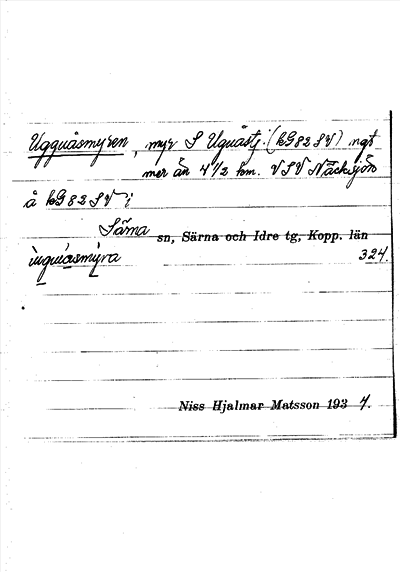 Ugguåsmyren, myr S Uguåstj. (kG82SV) ngt
mer än 4 1/2 km. VSV Näcksjön
å kG82SV i
Särna sn, Särna och Idre tg, Kopp. län
ùgguåsmýra 324.
Niss Hjalmar Matsson 1934.